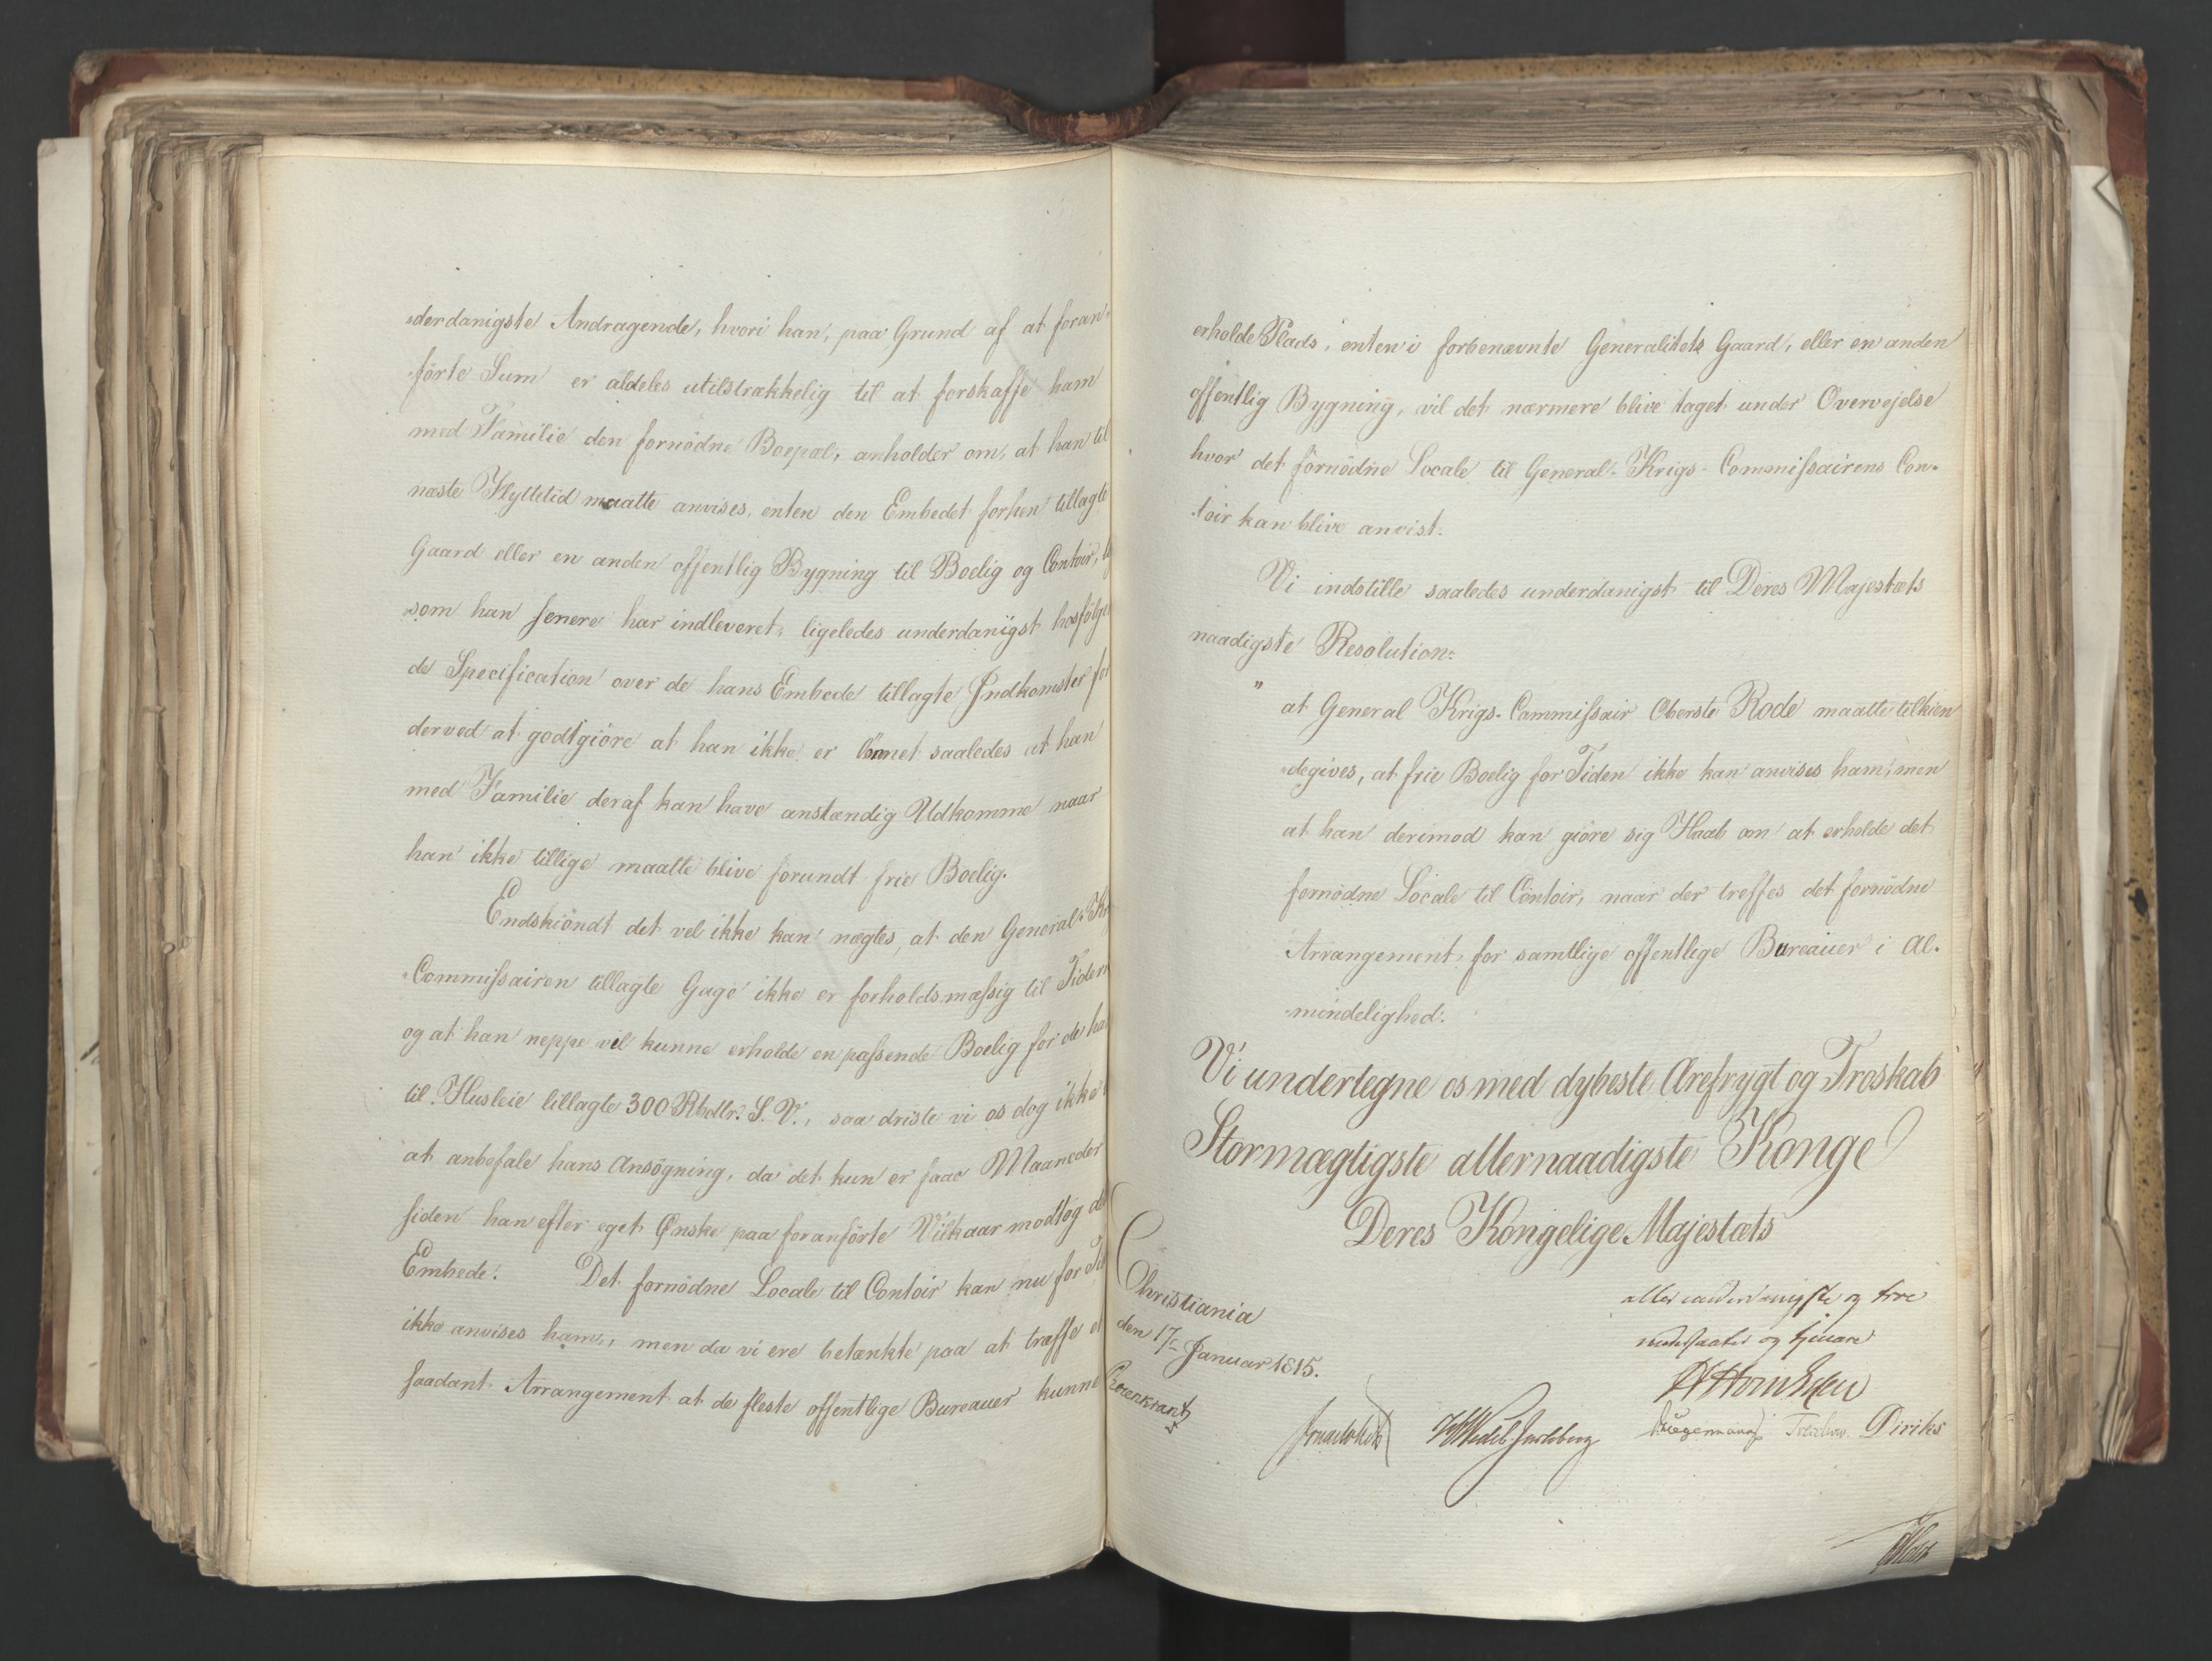 derdanigste Andragende, hvori han, paa Grund af at foran-
förte Sum er aldeles utilstrækkelig til at forskaffe ham
med Familie den fornödne Boepæl, anholder om, at han til
næste Flyttetid maatte anvises, enten den Embedet forhen tillagte
Gaard eller en anden offentlig Bygning til Boelig og Contoir,
som han senere har indleveret, ligeledes underdanigst hosfölgen
de Specification over de hans Embede tillagte Indkomster for
derved at godtgiöre at han ikke er lönnet saaledes at han
med Familie deraf kan have anstændig Udkomme naar
han ikke tillige maatte blive forundt frie Boelig.
Endskiöndt det vel ikke kan nægtes, at den General-Kr
Commissairen tillagte Gage ikke er forholdsmæssig til Tiden
og at han neppe vil kunne erholde en passende Boelig for de ha
til Husleie tillagte 300 Rbdlr. S. V., saa driste vi os dog ikke
at anbefale hans Ansögning, da det kun er faae Maaneder
siden han efter eget Ønske paa foranförte Vilkaar modtog de
Embede. Det fornödne Locale til Contoir kan nu for Ti
ikke anvises ham, men da vi ere betænkte paa at træffe et
saadant Arrangement at de fleste offentlige Bureauer kunne
erholde Plads, enten i forbenævnte Generalitets Gaard, eller en anden
offentlig Bygning, vil det nærmere blive taget under Overvejelse
hvor det fornödne Locale til General-Krigs-Commissairens Con-
toir kan blive anvist.
Vi indstille saaledes underdanigst til Deres Majestæts
naadigste Resolution:
" at General Krigs-Commissair Oberste Rode maatte tilkien
degives, at frie Boelig for Tiden ikke kan anvises ham, men
at han derimod kan giöre sig Haab om at erholde det
fornödne Locale til Contoir, naar der træffes det fornödne
Arrangement for samtlige offentlige Bureauer i Al-
mindelighed.
Vi undertegne os med dybeste Ærefrygt og Troskab
Stormægtigste allernaadigste Konge
Deres Kongelige Majestæts
allerunderdanigste og troe
undersaatter og tjenere
Christiania
den 17de Januar 1815.
Rosenkrantz
Wedel Jarlsberg Krogemann Treschow Diriks